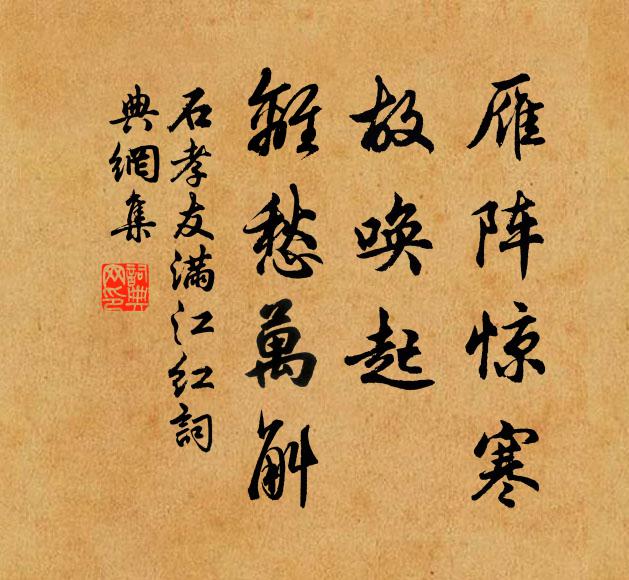 雁阵惊寒
故唤起
離愁萬斛
石孝友满江红詞
典網集
詞典
网印